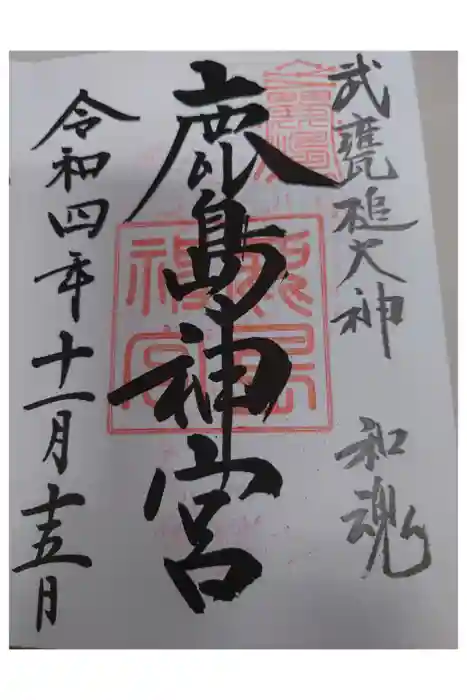 武甕槌大神 和魂
鹿島神宮
令和四年十一月十五日
鹿島神宮